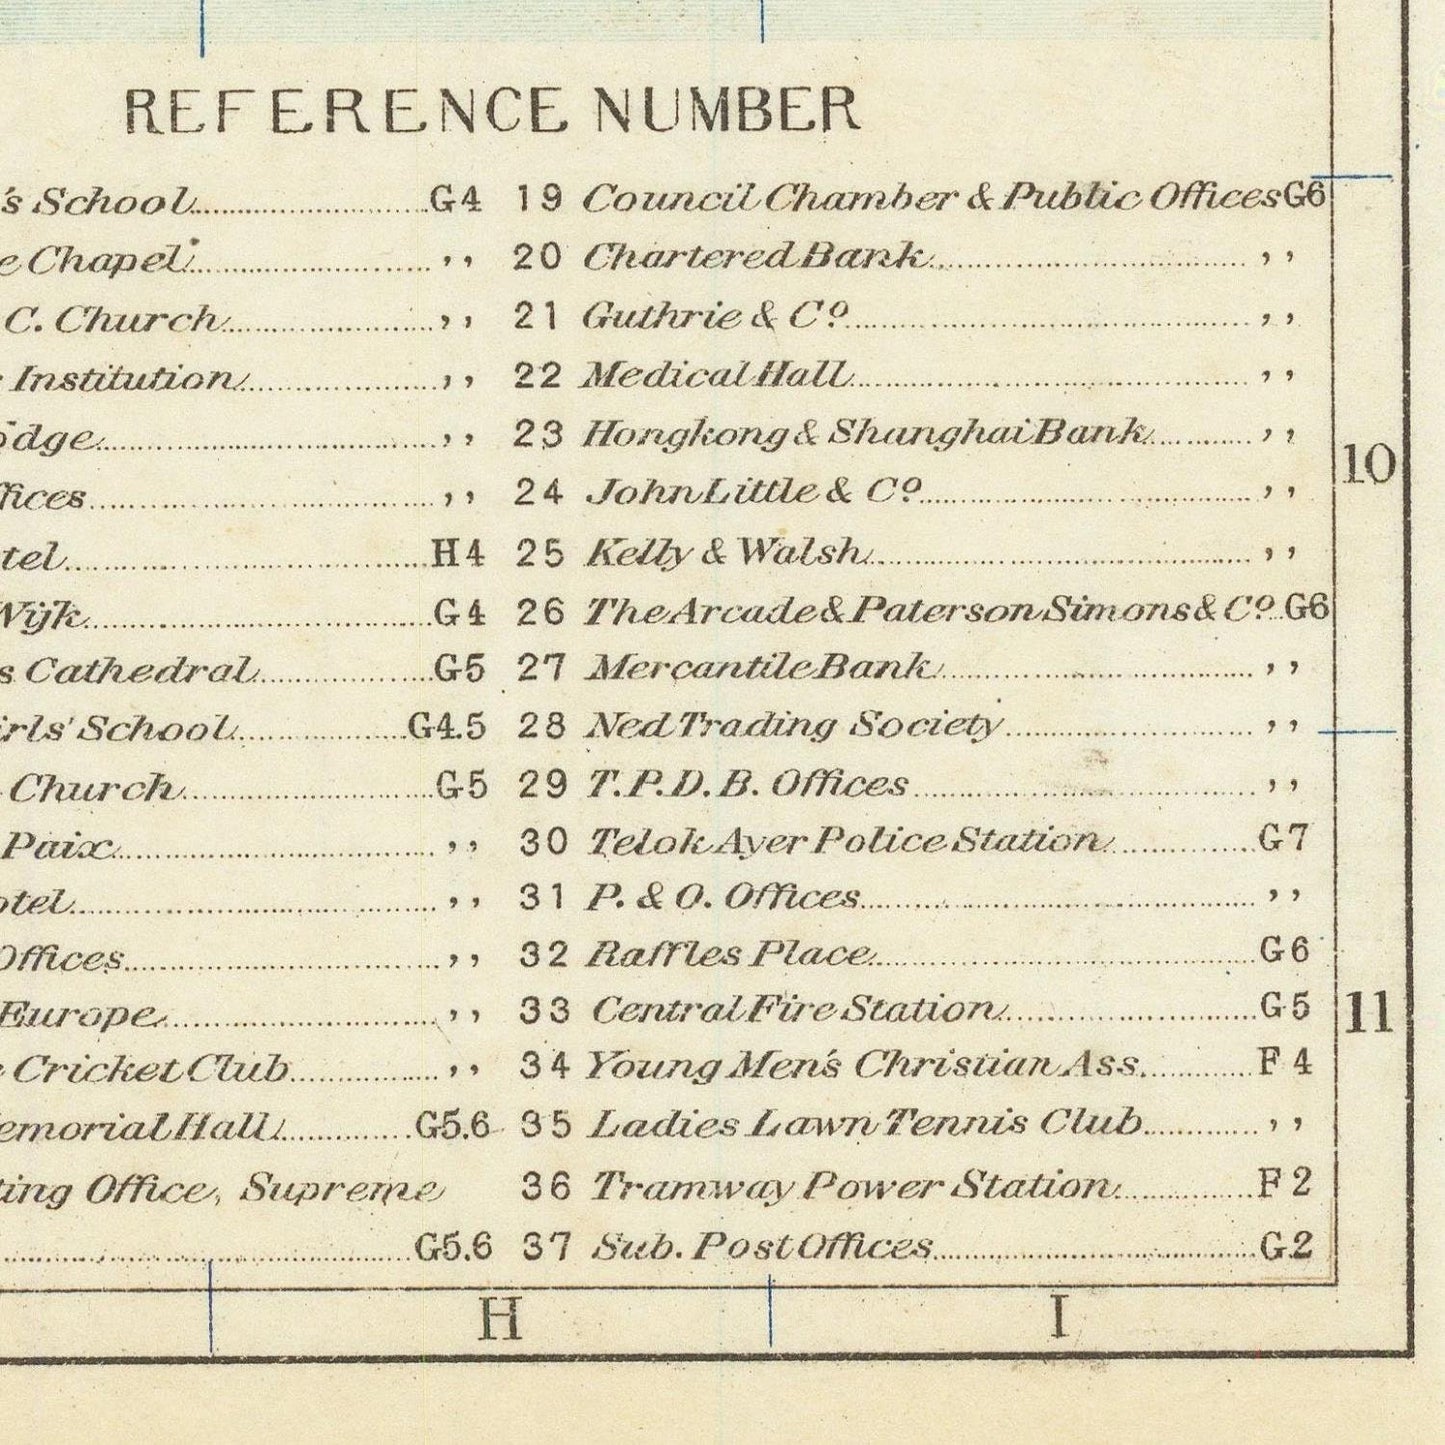 REFERENCE NUMBER
's School G4 19 Council Chamber & Public Offices G6
e Chapel ,, 20 Chartered Bank ,,
C. Church ,, 21 Guthrie & Cº ,,
Institution ,, 22 Medical Hall ,,
odge ,, 23 Hongkong & Shanghai Bank ,,
ffices ,, 24 John Little & Cº ,,
tel H4 25 Kelly & Walsh ,,
Wijk G4 26 The Arcade & Paterson Simons & Cº G6
s Cathedral G5 27 Mercantile Bank ,,
irls' School G4.5 28 Ned Trading Society ,,
Church G5 29 T.P.D.B. Offices ,,
Paix ,, 30 Telok Ayer Police Station G7
otel ,, 31 P. & O. Offices ,,
Offices ,, 32 Raffles Place G6
Europe ,, 33 Central Fire Station G5
Cricket Club ,, 34 Young Men's Christian Ass. F4
emorial Hall G5.6 35 Ladies Lawn Tennis Club ,,
ting Office, Supreme 36 Tramway Power Station F2
G5.6 37 Sub. Post Offices G2
10
11
H I